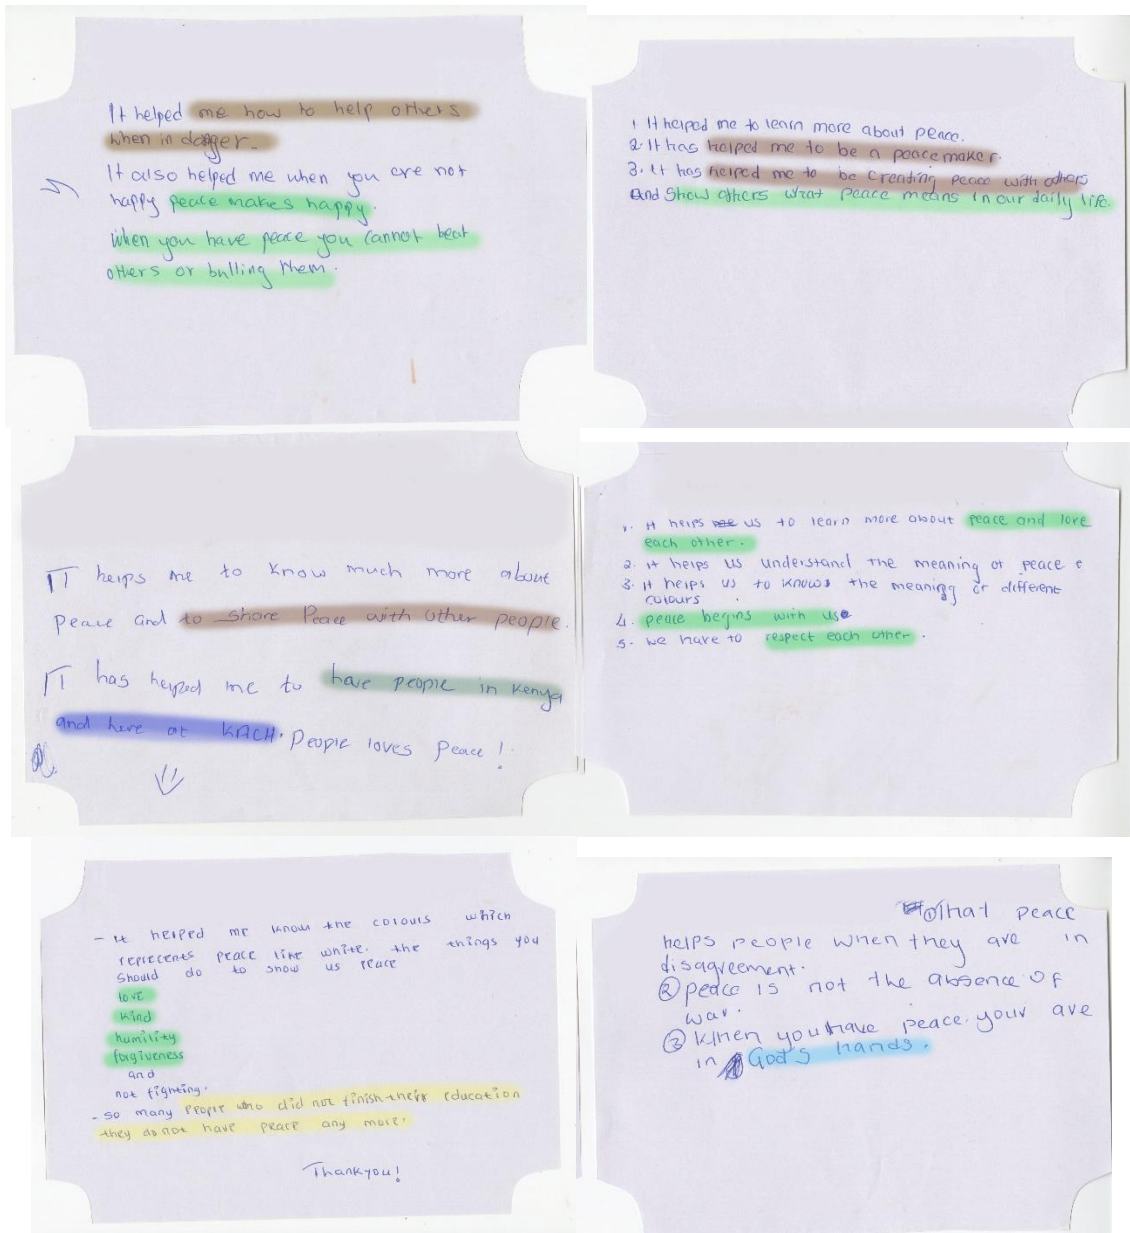 It helped me how to help others
when in danger.
It also helped me when you are not
happy peace makes happy.
When you have peace you cannot beat
others or bulling them.
1 It helped me to learn more about peace.
2. It has helped me to be a peace maker.
3. It has helped me to be creating peace with others
and show others what peace means in our daily life.
IT helps me to know much more about
peace and to share Peace with other people.
IT has helped me to have people in Kenya
and here at KACH. People loves peace!
1. It helps us to learn more about peace and love
each other.
2. It helps us understand the meaning of peace
3. It helps us to knows the meaning of different
colours.
4. peace begins with us
5. we have to respect each other.
- It helped me know the colours which
represents peace like white. the things you
should do to show us peace
love
kind
humility
forgiveness
and
not fighting.
- so many people who did not finish their education
they do not have peace any more.
Thankyou!
① That peace
helps people when they are in
disagreement.
② peace is not the absence of
war.
③ When you have peace your are
in God's hands.